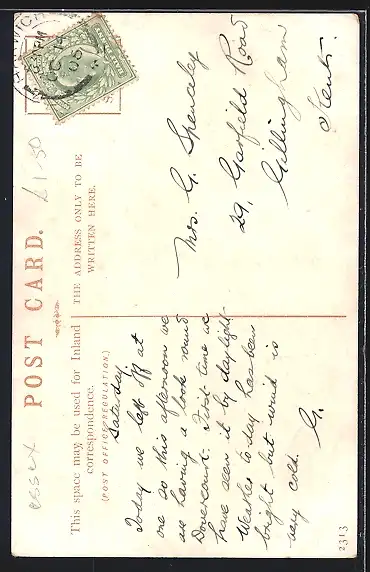 essex
POST CARD.
£1.50
This space may be used for Inland
correspondence.
(POST OFFICE REGULATION.)
THE ADDRESS ONLY TO BE
WRITTEN HERE.
Saturday.
Today we left off at
one so this afternoon we
are having a look round
Dovercourt. First time we
have seen it by daylight.
Weather to day has been
bright but wind is
very cold.
G.
Mrs. G. Spenceley
29, Garfield Road
Gillingham
Kent.
2313